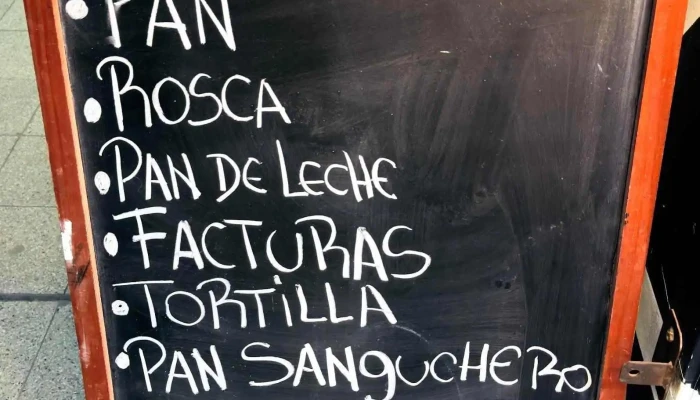 • PAN
• ROSCA
• PAN DE LECHE
• FACTURAS
• TORTILLA
• PAN SANGUCHERO